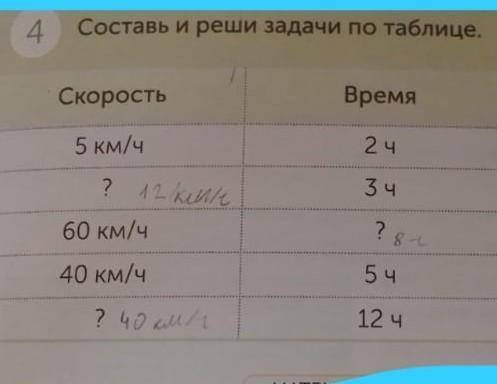 4 Составь и реши задачи по таблице.
Скорость Время
5 км/ч 2 ч
? 12 км/ч 3 ч
60 км/ч ? 8 ч
40 км/ч 5 ч
? 40 км/ч 12 ч